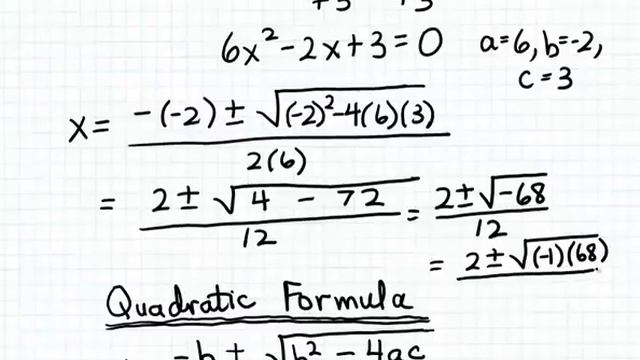 +3 +3
6x² - 2x + 3 = 0 a = 6, b = -2,
c = 3
x = -(-2) ± √(-2)² - 4(6)(3)
2(6)
= 2 ± √4 - 72 = 2 ± √-68
12 12
= 2 ± √(-1)(68)
Quadratic Formula
-b ± √b² - 4ac